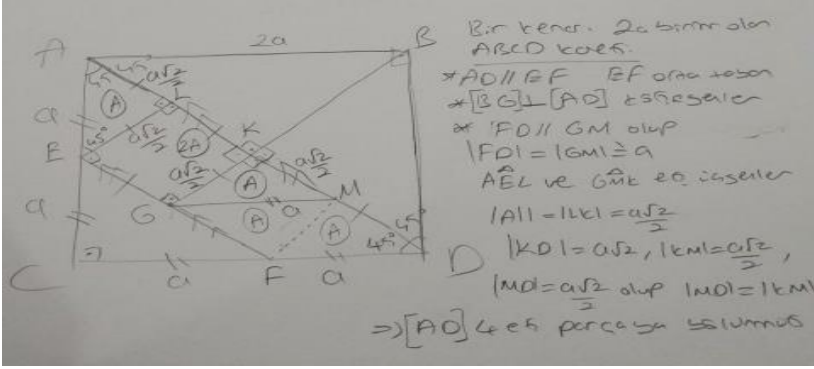 A
2a
B
45°
45°
a√2/2
A
L
a
a√2/2
2A
K
E
45°
a√2/2
A
a√2/2
M
G
a
A
A
a
45°
45°
C
a
F
a
D
Bir kenar. 2a birim olan
ABCD kares.
*AD//EF EF orta taban
*[BG]⊥[AD] köşegenler
* FD// GM olup
|FD|=|GM|=a
AEL ve GMK eş üçgenler
|AL|=|LK|=a√2/2
|KD|=a√2, |KM|=a√2/2,
|MD|=a√2/2 olup |MD|=|KM|
⇒[AD] 4 eş parçaya bölünmüş